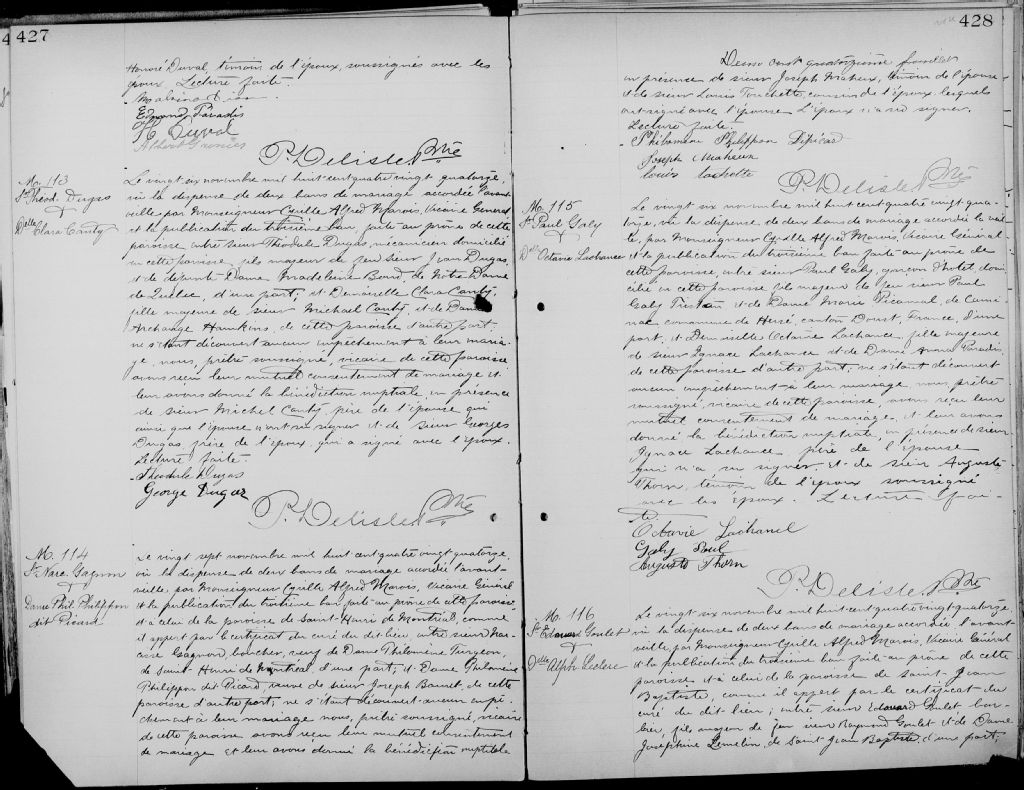 427
Honoré Duval, témoin de l'époux, soussignés avec les
époux. Lecture faite.
Edmond Paradis
H Duval
P. Delisle Ptre
M. 113
Sr Théod. Dugas
&
Delle Clara Canty
Le vingt six novembre mil huit cent quatre vingt quatorze,
vu la dispense de deux bans de mariage accordée l'avant
veille par Monseigneur Cyrille Alfred Marois, Vicaire Général
et la publication du troisième ban, faite au prône de cette
paroisse, entre sieur Théodule Dugas, mécanicien domicilié
en cette paroisse, fils majeur de feu sieur Jean Dugas,
et de défunte Dame Madeleine Bond, de Notre Dame
de Québec, d'une part; et Demoiselle Clara Canty,
fille mineure de sieur Michael Canty, et de Dame
Archange Hawkins, de cette paroisse d'autre part;
ne s'étant découvert aucun empêchement à leur maria-
ge, nous, prêtre soussigné, vicaire de cette paroisse
avons reçu leur mutuel consentement de mariage et
leur avons donné la bénédiction nuptiale en présence
de sieur Michel Canty, père de l'épouse qui
ainsi que l'épouse n'ont su signer et de sieur Georges
Dugas, frère de l'époux, qui a signé avec l'époux.
Lecture faite.
Théodule Dugas
George Dugas
P. Delisle Ptre
M. 114
Sr Narc. Gagnon
&
Dame Phil. Philippon
dit Picard
Le vingt sept novembre mil huit cent quatre vingt quatorze,
vu la dispense de deux bans de mariage accordée l'avant-
veille par Monseigneur Cyrille Alfred Marois, Vicaire Général
et la publication du troisième ban faite au prône de cette paroisse
et à celui de la paroisse de Saint-Henri de Montréal, comme
il appert par le certificat du curé du dit lieu, entre sieur Nar-
cisse Gagnon, boucher, veuf de Dame Philomène Turgeon,
de Saint Henri de Montréal d'une part; et Dame Philomène
Philippon dit Picard, veuve de sieur Joseph, de cette
paroisse d'autre part; ne s'étant découvert aucun empê-
chement à leur mariage nous, prêtre soussigné, vicaire
de cette paroisse avons reçu leur mutuel consentement
de mariage et leur avons donné la bénédiction nuptiale
428
en présence de sieur Joseph Maheux, témoin de l'épouse
et de sieur Louis Touchette, cousin de l'époux, lesquels
ont signé avec l'épouse. L'époux n'a su signer.
Lecture faite.
Philomène Philippon Dipicard
Joseph Maheux
P. Delisle Ptre
M. 115
Sr Paul Galy
&
Delle Octavie Lachance
Le vingt six novembre mil huit cent quatre vingt qua-
torze, vu la dispense de deux bans de mariage accordée la veil-
le, par Monseigneur Cyrille Alfred Marois, Vicaire Général
et la publication du troisième ban faite au prône de
cette paroisse, entre sieur Paul Galy, garçon d'hôtel, domi-
cilié en cette paroisse fils majeur de feu sieur Paul
Galy Tristan et de Dame Marie, de
commune de, canton, France, d'une
part, et Demoiselle Octavie Lachance, fille majeure
de sieur Ignace Lachance et de Dame Anna Paradis,
de cette paroisse d'autre part; ne s'étant découvert
aucun empêchement à leur mariage, nous, prêtre
soussigné, vicaire de cette paroisse, avons reçu leur
mutuel consentement de mariage et leur avons
donné la bénédiction nuptiale, en présence de sieur
Ignace Lachance, père de l'épouse
qui n'a su signer et de sieur Auguste
Thorn, témoin de l'époux soussigné
avec les époux. Lecture fai-
te.
Octavie Lachance
Galy Paul
Auguste Thorn
P. Delisle Ptre
M. 116
Sr Edouard Goulet
&
Delle Alph. Leclerc
Le vingt six novembre mil huit cent quatre vingt quatorze,
vu la dispense de deux bans de mariage accordée l'avant
veille par Monseigneur Cyrille Alfred Marois, Vicaire Général
et la publication du troisième ban faite au prône de cette
paroisse et à celui de la paroisse de Saint-Jean
Baptiste, comme il appert par le certificat du
curé du dit lieu; entre sieur Edouard Goulet bar-
bier, fils majeur de feu sieur Raymond Goulet et de Dame
Joséphine Lemelin, de Saint Jean Baptiste, d'une part;